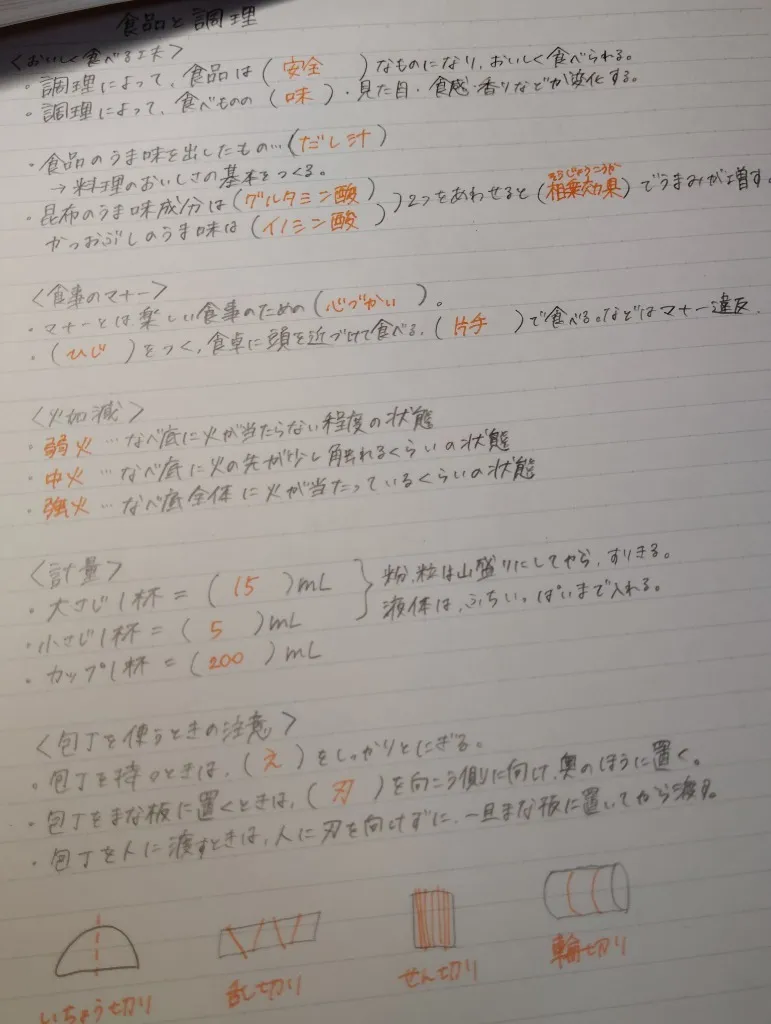 食品と調理
<おいしく食べる工夫>
・調理によって、食品は(安全)なものになり、おいしく食べられる。
・調理によって、食べものの(味)・見た目・食感・香りなどが変化する。
・食品のうま味を出したもの…(だし汁)
→料理のおいしさの基本をつくる。
・昆布のうま味成分は(グルタミン酸)
かつおぶしのうま味は(イノシン酸)
2つをあわせると(相乗効果)でうまみが増す。
そうじょうこうか
<食事のマナー>
・マナーとは楽しい食事のための(心づかい)。
・(ひじ)をつく、食卓に頭を近づけて食べる、(片手)で食べる。などはマナー違反.
<火加減>
・弱火…なべ底に火が当たらない程度の状態
・中火…なべ底に火の先が少し触れるくらいの状態
・強火…なべ底全体に火が当たっているくらいの状態
<計量>
・大さじ1杯=(15)mL
・小さじ1杯=(5)mL
・カップ1杯=(200)mL
粉、粒は山盛りにしてから、すりきる。
液体は、ふちいっぱいまで入れる。
<包丁を使うときの注意>
・包丁を持つときは、(え)をしっかりとにぎる。
・包丁をまな板に置くときは、(刃)を向こう側に向け、奥のほうに置く。
・包丁を人に渡すときは、人に刃を向けずに、一旦まな板に置いてから渡す。
いちょう切り
乱切り
せん切り
輪切り